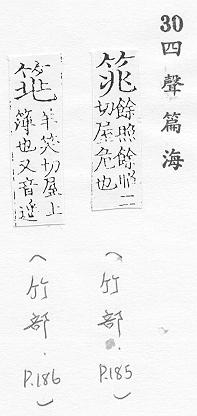 30 四聲篇海
筄
餘照餘昭二
切屋危也
(竹部．P.185)
羊笑切屋上
簿也又音遥
(竹部．P.186)